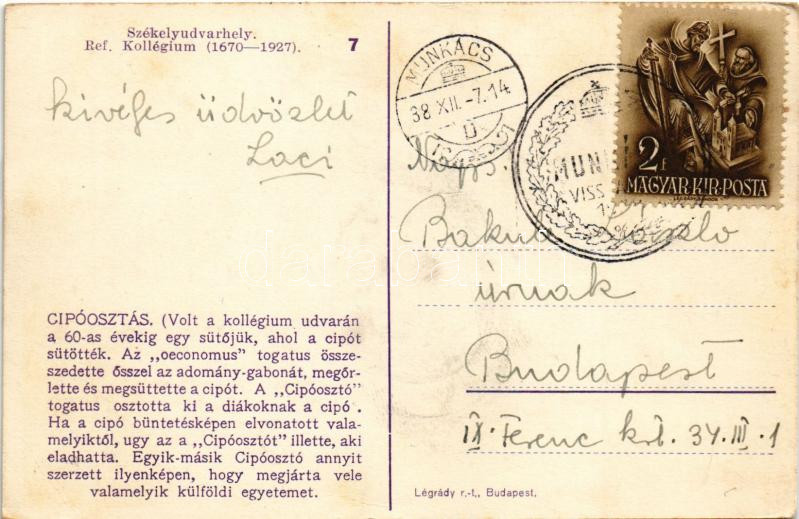 Székelyudvarhely.
Ref. Kollégium (1670—1927).
7
kivéges üdvözlet
Laci
CIPÓOSZTÁS. (Volt a kollégium udvarán
a 60-as évekig egy sütőjük, ahol a cipót
sütötték. Az „oeconomus" togatus össze-
szedette ősszel az adomány-gabonát, megőr-
lette és megsüttette a cipót. A „Cipóosztó"
togatus osztotta ki a diákoknak a cipó .
Ha a cipó büntetésképen elvonatott vala-
melyiktől, ugy az a „Cipóosztót" illette, aki
eladhatta. Egyik-másik Cipóosztó annyit
szerzett ilyenképen, hogy megjárta vele
valamelyik külföldi egyetemet.
MUNKÁCS
38 XII.-7.14
D
MUN
VISS
19
2f
MAGYAR·KIR·POSTA
Nags.
László
úrnak
Budapest
IX. Ferenc krt. 34. III. 1
Légrády r.-t., Budapest.